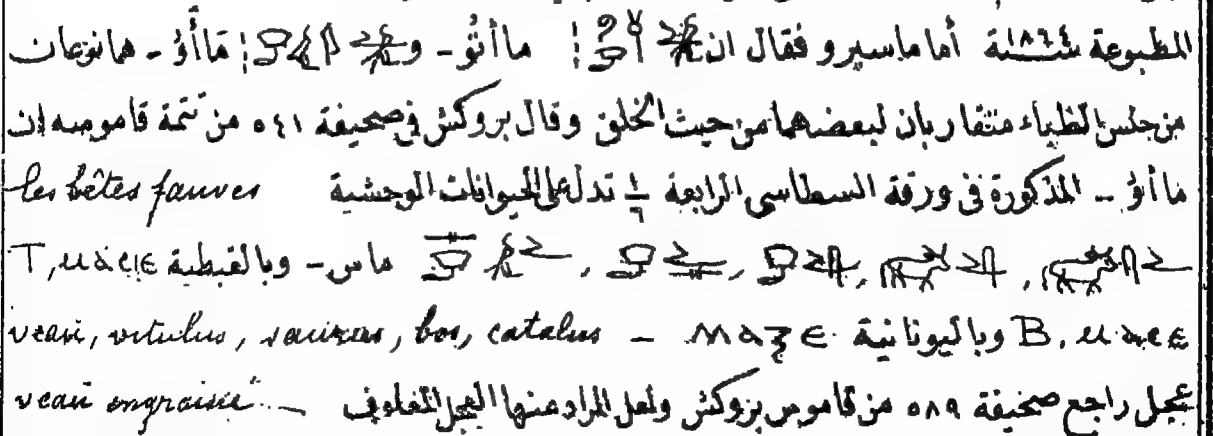 المطبوعة سنة ١٨٦٤ أما ماسپرو فقال ان ماأثؤ - و ماأؤ - هما نوعان
من جلس الظباء متقاربان لبعضهما من حيث الخلق وقال بروكش في صحيفة ٥٤١ من تتمة قاموسه ان
ماأؤ - المذكورة في ورقة السطاسي الرابعة تدل على الحيوانات الوحشية les bêtes fauves
ماس - وبالقبطية T, ⲙⲁⲥⲓⲉ
B, ⲙⲁⲥⲉ وباليونانية - veau, vitulus, bos, catulus
عجل راجع صحيفة ٥٨٩ من قاموس بروكش ولعل المراد منها العجل المعلوف - veau engraissé